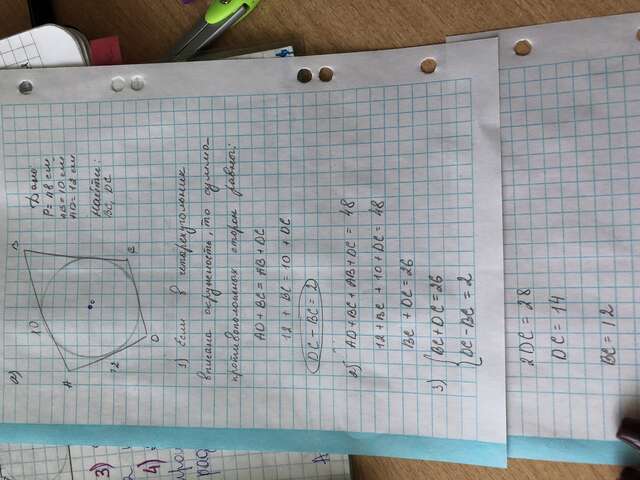 а)
B
10
A
O
12
C
D
Дано
P = 48 см
AB = 10 см
AD = 12 см
Найти:
BC, DC
1) Если в четырехугольник
вписана окружность, то сумма
противоположных сторон равны:
AD + BC = AB + DC
12 + BC = 10 + DC
DC - BC = 2
2) AD + BC + AB + DC = 48
12 + BC + 10 + DC = 48
BC + DC = 26
3) BC + DC = 26
DC - BC = 2
2DC = 28
DC = 14
BC = 12
3)
4)